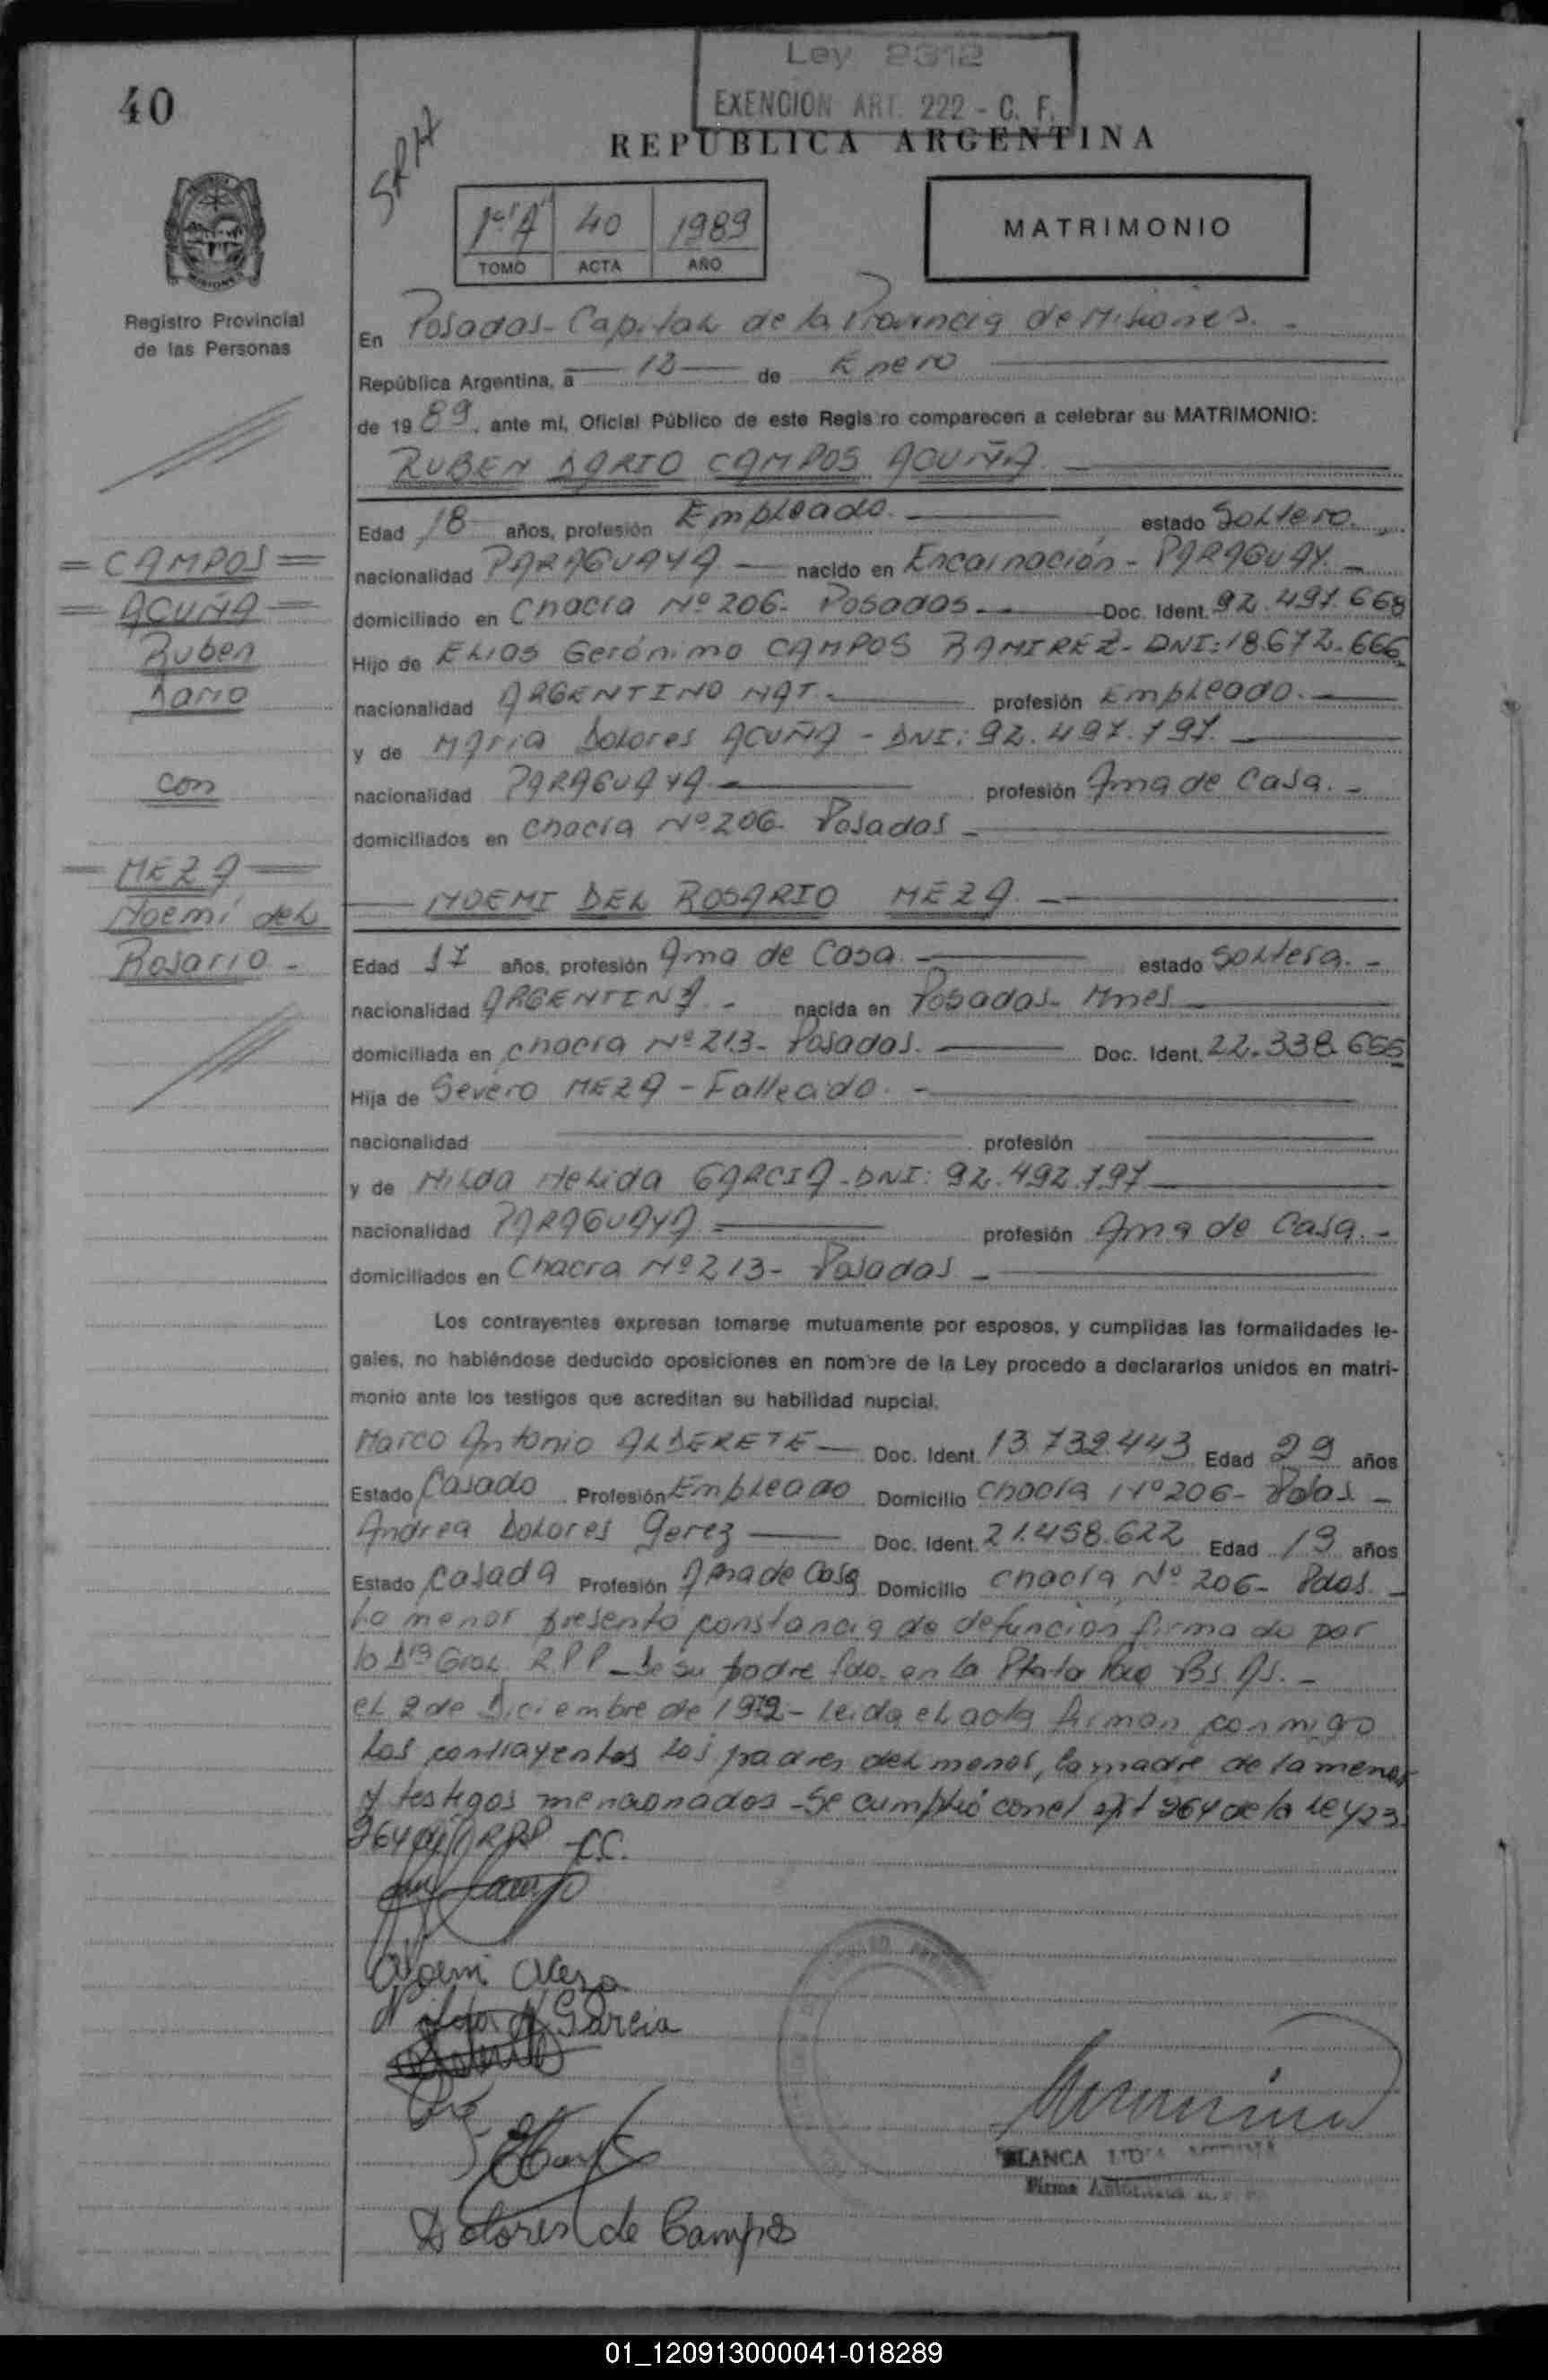 40
Ley 2312
EXENCION ART. 222 - C. F.
REPUBLICA ARGENTINA
1º "A" 40 1989
TOMO ACTA AÑO
MATRIMONIO
Registro Provincial
de las Personas
En Posadas - Capital de la Provincia de Misiones. -
República Argentina, a 12 de Enero
de 1989, ante mi, Oficial Público de este Registro comparecen a celebrar su MATRIMONIO:
RUBEN DARIO CAMPOS ACUÑA.
Edad 18 años, profesión Empleado. estado Soltero.
= CAMPOS =
= ACUÑA =
Ruben
Dario
con
= MEZA =
Noemi del
Rosario -
nacionalidad PARAGUAYA nacido en Encarnación - PARAGUAY. -
domiciliado en Chacra Nº 206 - Posadas Doc. Ident. 92.497.668
Hijo de ELIOS Gerónimo CAMPOS RAMIREZ - DNI: 18.672.666
nacionalidad ARGENTINO NAT. profesión Empleado.
y de Maria Dolores ACUÑA - DNI: 92.497.797.
nacionalidad PARAGUAYA profesión Ama de Casa. -
domiciliados en Chacra Nº 206 - Posadas -
NOEMI DEL ROSARIO MEZA.
Edad 17 años, profesión Ama de Casa. estado Soltera. -
nacionalidad ARGENTINA. - nacida en Posadas - Mnes
domiciliada en Chacra Nº 213 - Posadas. Doc. Ident. 22.338.655
Hija de Severo MEZA - Fallecido. -
nacionalidad profesión
y de Nilda Nelida GARCIA - DNI: 92.492.797
nacionalidad PARAGUAYA profesión Ama de Casa. -
domiciliados en Chacra Nº 213 - Posadas -
Los contrayentes expresan tomarse mutuamente por esposos, y cumplidas las formalidades le-
gales, no habiéndose deducido oposiciones en nombre de la Ley procedo a declararlos unidos en matri-
monio ante los testigos que acreditan su habilidad nupcial.
Marco Antonio ALDERETE Doc. Ident. 13.732.443 Edad 29 años
Estado Casado Profesión Empleado Domicilio Chacra Nº 206 - Pdas -
Andrea Dolores Gerez Doc. Ident. 21.458.622 Edad 19 años
Estado Casada Profesión Ama de Casa Domicilio Chacra Nº 206 - Pdas. -
La menor presentó constancia de defunción firmado por
la Gral RPP - de su padre fdo. en la Plata Bs As. -
el 2 de Diciembre de 1972 - Leida el acta firman conmigo
los contrayentes los padres del menor, la madre de la menor
y testigos mencionados - Se cumplió con el art 264 de la Ley 23
264 RPP C.C.
Noemi Meza
Nilda N Garcia
Dolores de Campos
BLANCA
Firma
01_120913000041-018289